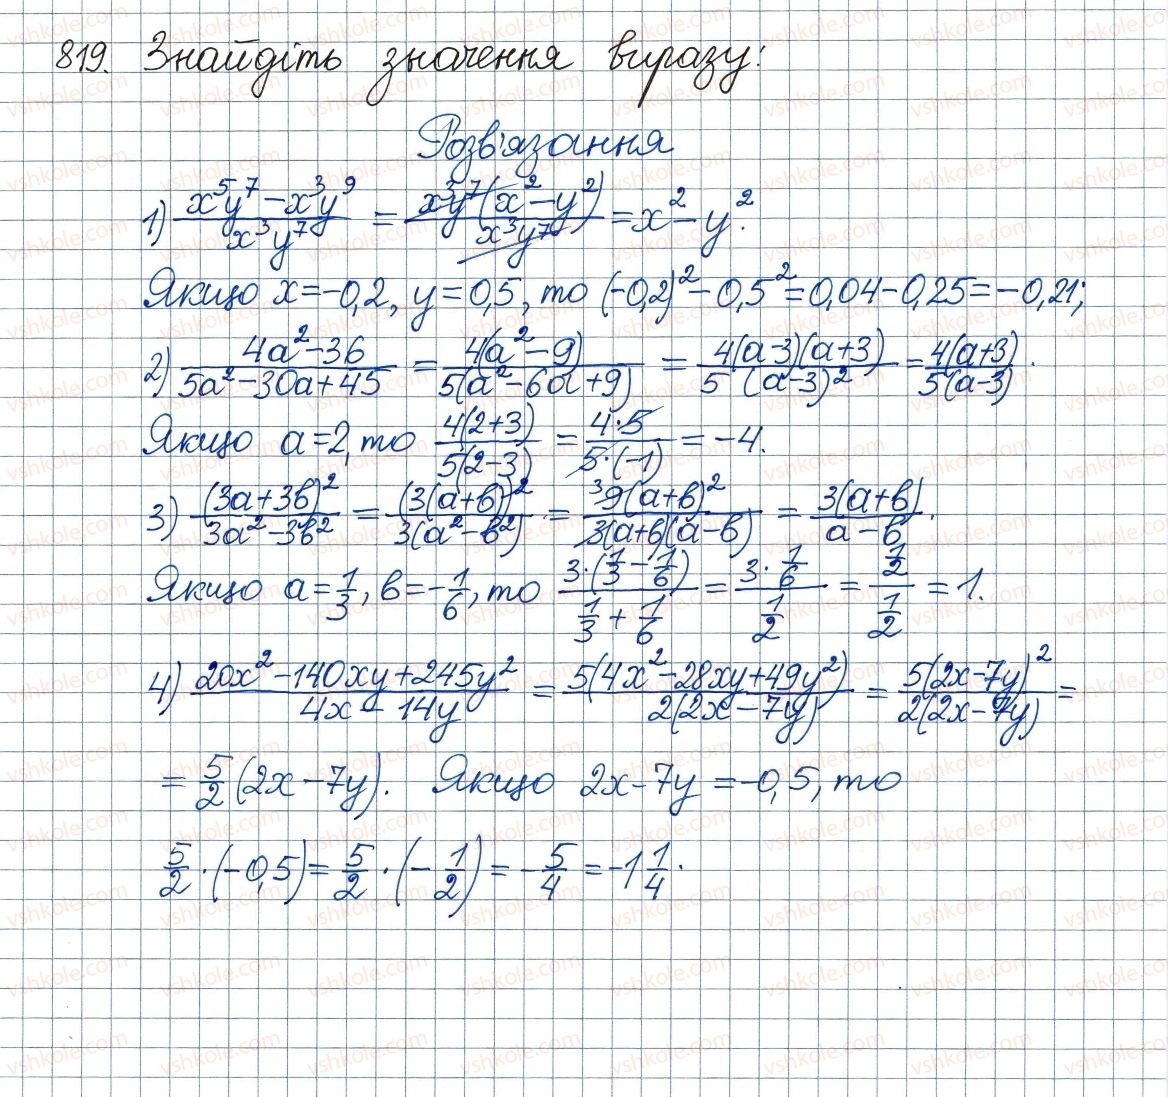 819. Знайдіть значення виразу:
Розв'язання
1) (x⁵y⁷ − x³y⁹)/(x³y⁷) = (x³y⁷(x² − y²))/(x³y⁷) = x² − y².
Якщо x = −0,2, y = 0,5, то (−0,2)² − 0,5² = 0,04 − 0,25 = −0,21;
2) (4a² − 36)/(5a² − 30a + 45) = (4(a² − 9))/(5(a² − 6a + 9)) = (4(a − 3)(a + 3))/(5 (a − 3)²) = (4(a + 3))/(5(a − 3)).
Якщо a = 2, то (4(2 + 3))/(5(2 − 3)) = (4·5)/(5·(−1)) = −4.
3) (3a + 3b)²/(3a² − 3b²) = (3(a + b))²/(3(a² − b²)) = ³9(a + b)²/(3(a + b)(a − b)) = (3(a + b))/(a − b).
Якщо a = 1/3, b = −1/6, то (3·(1/3 − 1/6))/(1/3 + 1/6) = (3·1/6)/(1/2) = (1/2)/(1/2) = 1.
4) (20x² − 140xy + 245y²)/(4x − 14y) = (5(4x² − 28xy + 49y²))/(2(2x − 7y)) = (5(2x − 7y)²)/(2(2x − 7y)) =
= 5/2 (2x − 7y). Якщо 2x − 7y = −0,5, то
5/2 · (−0,5) = 5/2 · (−1/2) = −5/4 = −1 1/4.